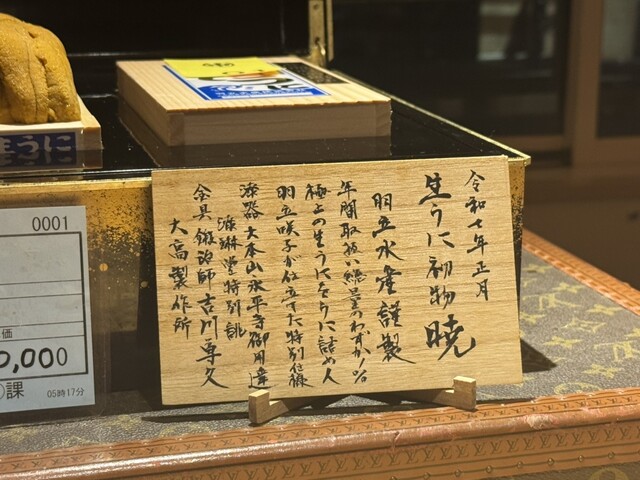 令和七年正月
生うに初物 暁
羽立水産謹製
年間取扱い総量のわずか1%
極上の生うにをさらに詰め人
羽立咲子が仕立てた特別仕様
漆器 大本山永平寺御用達
漆琳堂特別誂
金具 錺政師 吉川専久
大高製作所
生うに
0001
価
0,000
課
05時17分